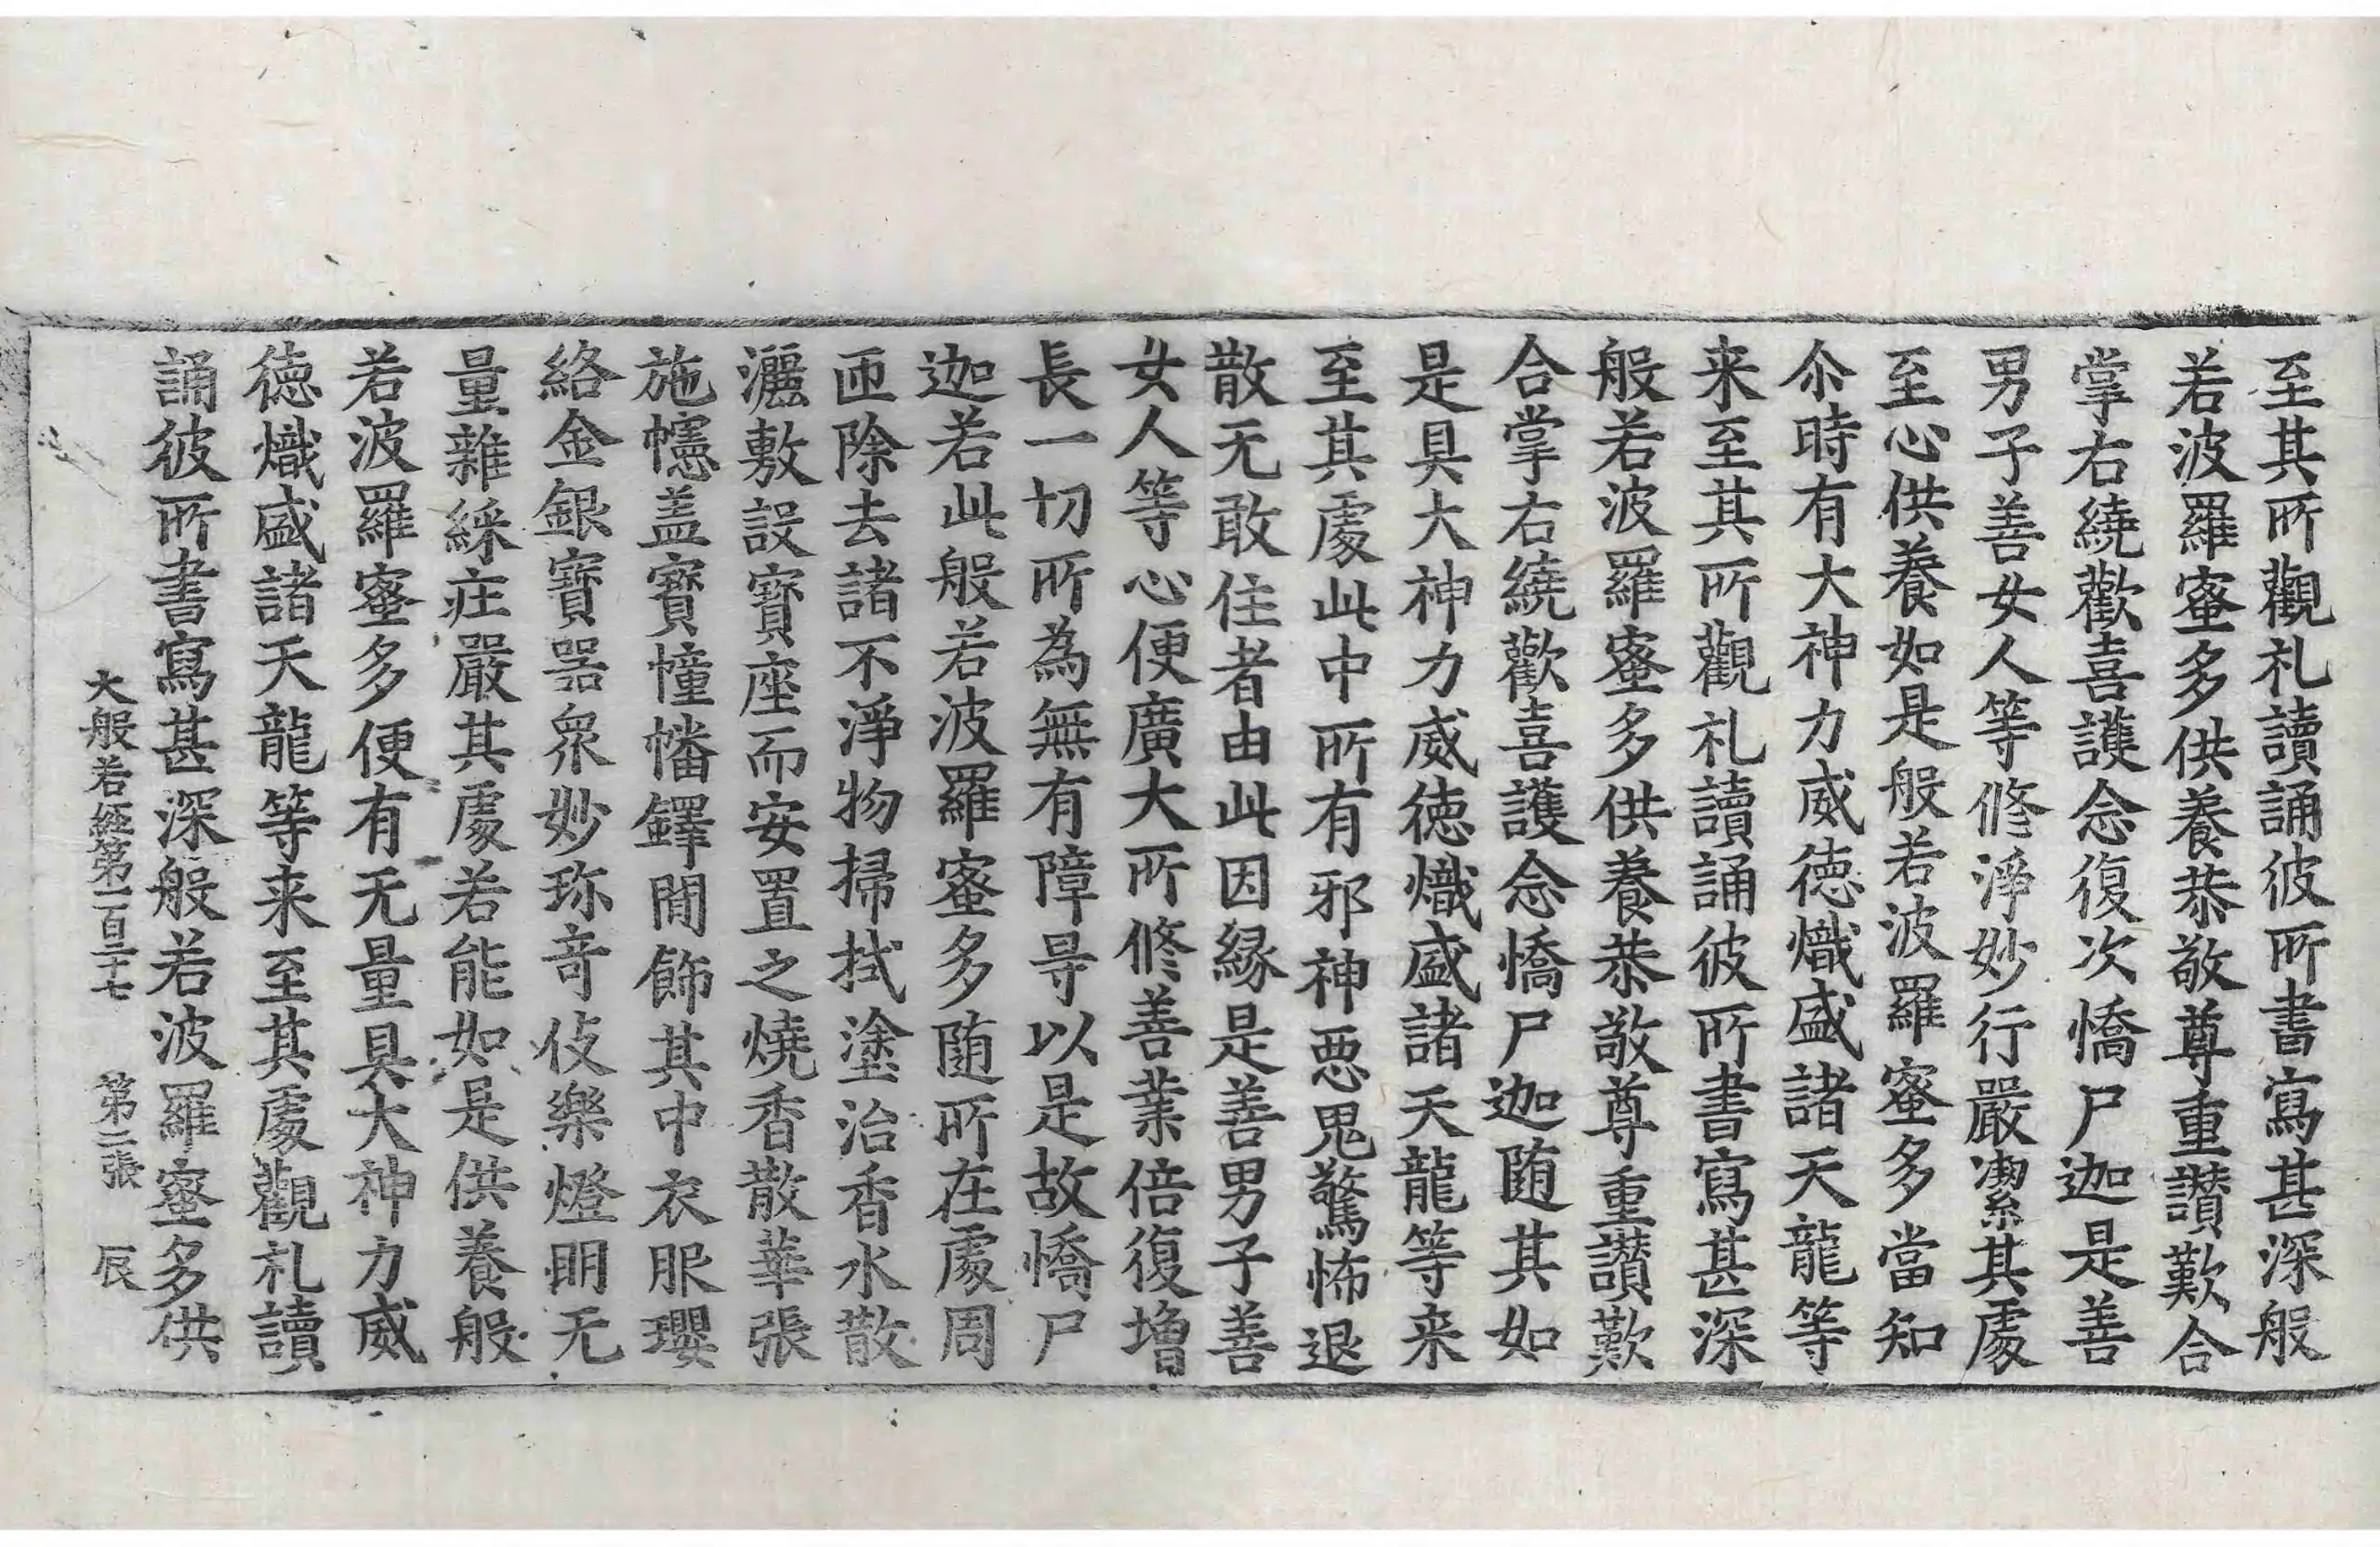 至其所觀礼讀誦彼所書寫甚深般
若波羅蜜多供養恭敬尊重讃歎合
掌右繞歡喜護念復次憍尸迦是善
男子善女人等修淨妙行嚴潔其處
至心供養如是般若波羅蜜多當知
尒時有大神力威徳熾盛諸天龍等
来至其所觀礼讀誦彼所書寫甚深
般若波羅蜜多供養恭敬尊重讃歎
合掌右繞歡喜護念憍尸迦随其如
是具大神力威徳熾盛諸天龍等来
至其處此中所有邪神悪鬼驚怖退
散无敢住者由此因縁是善男子善
女人等心便廣大所修善業倍復増
長一切所為無有障㝵以是故憍尸
迦若此般若波羅蜜多随所在處周
匝除去諸不淨物掃拭塗治香水散
灑敷設寳座而安置之燒香散華張
施幰盖寳幢幡鐸閒飾其中衣服瓔
絡金銀寳器衆妙珎竒伎樂燈明无
量雜綵庄嚴其處若能如是供養般
若波羅蜜多便有无量具大神力威
徳熾盛諸天龍等来至其處觀礼讀
誦彼所書寫甚深般若波羅蜜多供
大般若經第一百二十七 第二張 辰